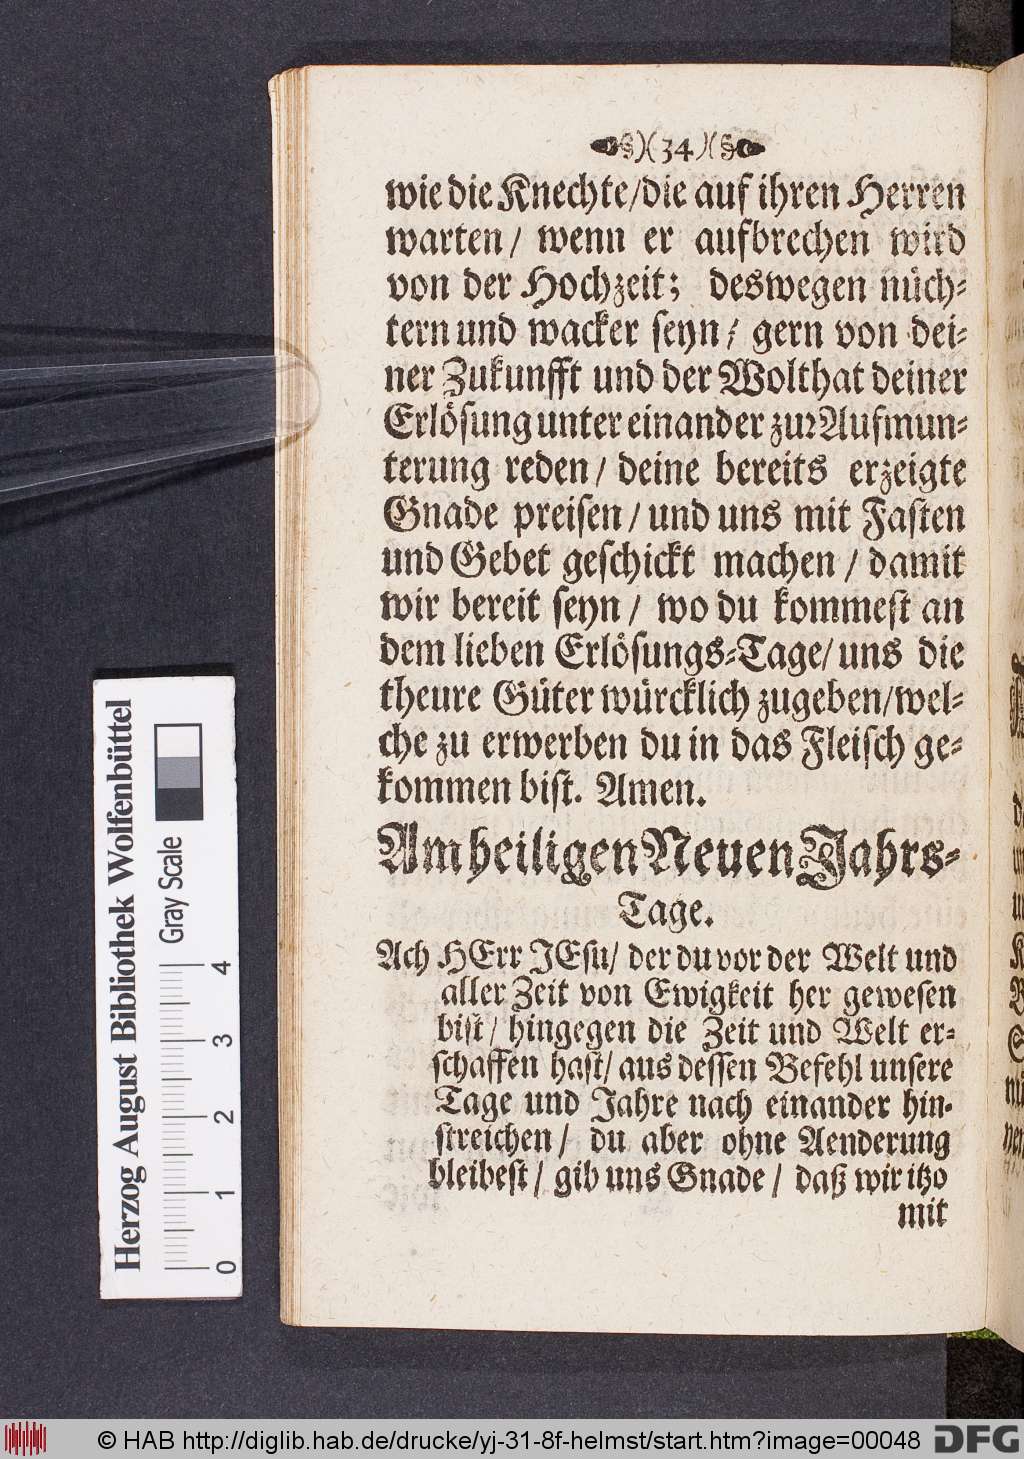 §)(34)(§
wie die Knechte/die auf ihren Herren
warten/ wenn er aufbrechen wird
von der Hochzeit; deswegen nüch⸗
tern und wacker ſeyn/ gern von dei⸗
ner Zukunfft und der Wolthat deiner
Erlöſung unter einander zur Aufmun⸗
terung reden/ deine bereits erzeigte
Gnade preiſen/ und uns mit Faſten
und Gebet geſchickt machen/ damit
wir bereit ſeyn/ wo du kommeſt an
dem lieben Erlöſungs⸗Tage/ uns die
theure Güter würcklich zugeben/wel⸗
che zu erwerben du in das Fleiſch ge⸗
kommen biſt. Amen.
Am heiligen Neuen Jahrs⸗
Tage.
Ach HErr JEſu/ der du vor der Welt und
aller Zeit von Ewigkeit her geweſen
biſt/ hingegen die Zeit und Welt er⸗
ſchaffen haſt/ aus deſſen Befehl unſere
Tage und Jahre nach einander hin⸗
ſtreichen/ du aber ohne Aenderung
bleibeſt/ gib uns Gnade/ daß wir itzo
mit
Herzog August Bibliothek Wolfenbüttel
Gray Scale
0 1 2 3 4
© HAB http://diglib.hab.de/drucke/yj-31-8f-helmst/start.htm?image=00048
DFG